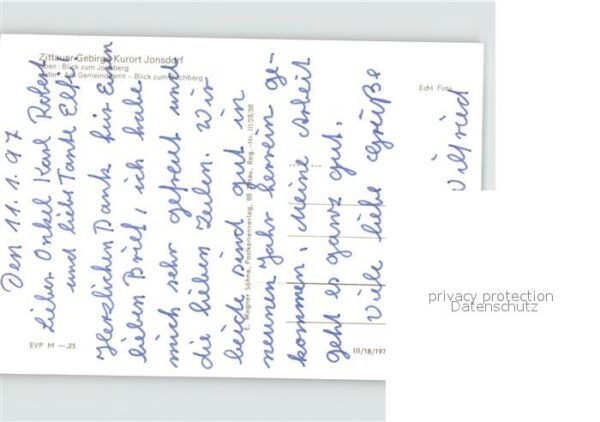 Zittauer Gebirge Kurort Jonsdorf
oben: Blick zum Jonsberg
unten: Am Gemeindeamt – Blick zum Buchberg
Echt Foto
Den 11.1.97
Lieber Onkel Karl Robert
und liebe Tante Elfi
Herzlichen Dank für Euren
lieben Brief, ich habe
mich sehr gefreut und
die lieben Zeilen. Wir
beide sind gut in
neunen Jahr herrein ge-
kommen. Meine Arbeit
geht es ganz gut.
Viele liebe Grüße
Wilfried
E. Wagner Söhne, Postkartenverlag, 88 Zittau, Reg.-Nr. III/28/38
EVP M –.25
III/18/197
privacy protection
Datenschutz